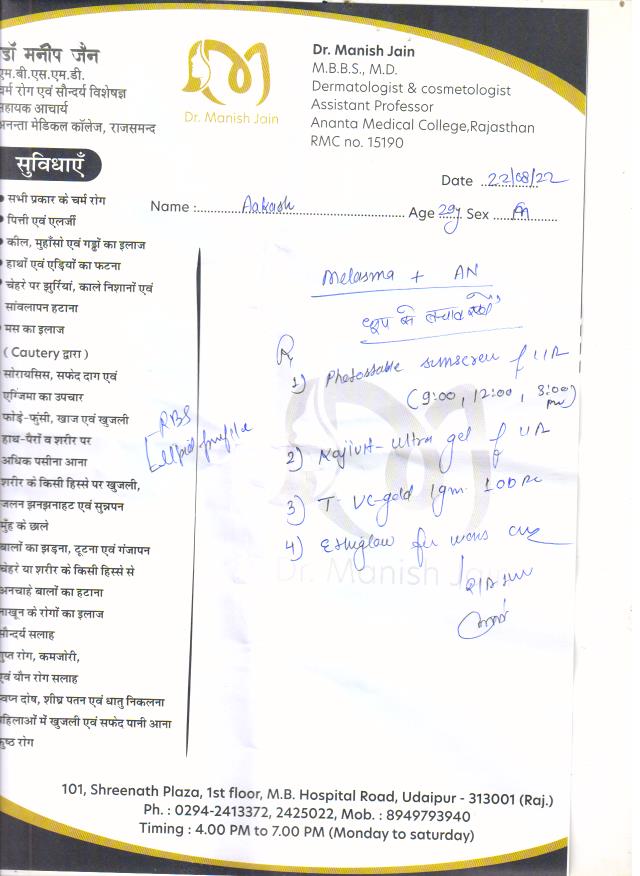 डॉ मनीप जैन
एम.बी.एस.एम.डी.
चर्म रोग एवं सौन्दर्य विशेषज्ञ
सहायक आचार्य
अनन्ता मेडिकल कॉलेज, राजसमन्द
Dr. Manish Jain
Dr. Manish Jain
M.B.B.S., M.D.
Dermatologist & cosmetologist
Assistant Professor
Ananta Medical College,Rajasthan
RMC no. 15190
Date 22/08/22
Name : Aakash Age 29y Sex
सुविधाएँ
सभी प्रकार के चर्म रोग
पित्ती एवं एलर्जी
कील, मुहाँसो एवं गड्ढों का इलाज
हाथों एवं एड़ियों का फटना
चेहरे पर झुर्रियां, काले निशानों एवं
सांवलापन हटाना
मस का इलाज
( Cautery द्वारा )
सोरायसिस, सफेद दाग एवं
एग्जिमा का उपचार
फोड़े-फुंसी, खाज एवं खुजली
हाथ-पैरों व शरीर पर
अधिक पसीना आना
शरीर के किसी हिस्से पर खुजली,
जलन झनझनाहट एवं सुन्नपन
मुँह के छाले
बालों का झड़ना, टूटना एवं गंजापन
चेहरे या शरीर के किसी हिस्से से
अनचाहे बालों का हटाना
नाखून के रोगों का इलाज
सौन्दर्य सलाह
गुप्त रोग, कमजोरी,
एवं यौन रोग सलाह
स्वप्न दोष, शीघ्र पतन एवं धातु निकलना
महिलाओं में खुजली एवं सफेद पानी आना
कुष्ठ रोग
RBS
Lipid profile
Melasma + AN
धूप से बचाव करें
Rx
1) Photostable sunscreen
(9:00, 12:00, 3:00 pm)
2) Kojivit-Ultra gel
3) T- VC-gold 1gm
4) Ethiglow
Dr. Manish Jain
101, Shreenath Plaza, 1st floor, M.B. Hospital Road, Udaipur - 313001 (Raj.)
Ph. : 0294-2413372, 2425022, Mob. : 8949793940
Timing : 4.00 PM to 7.00 PM (Monday to saturday)